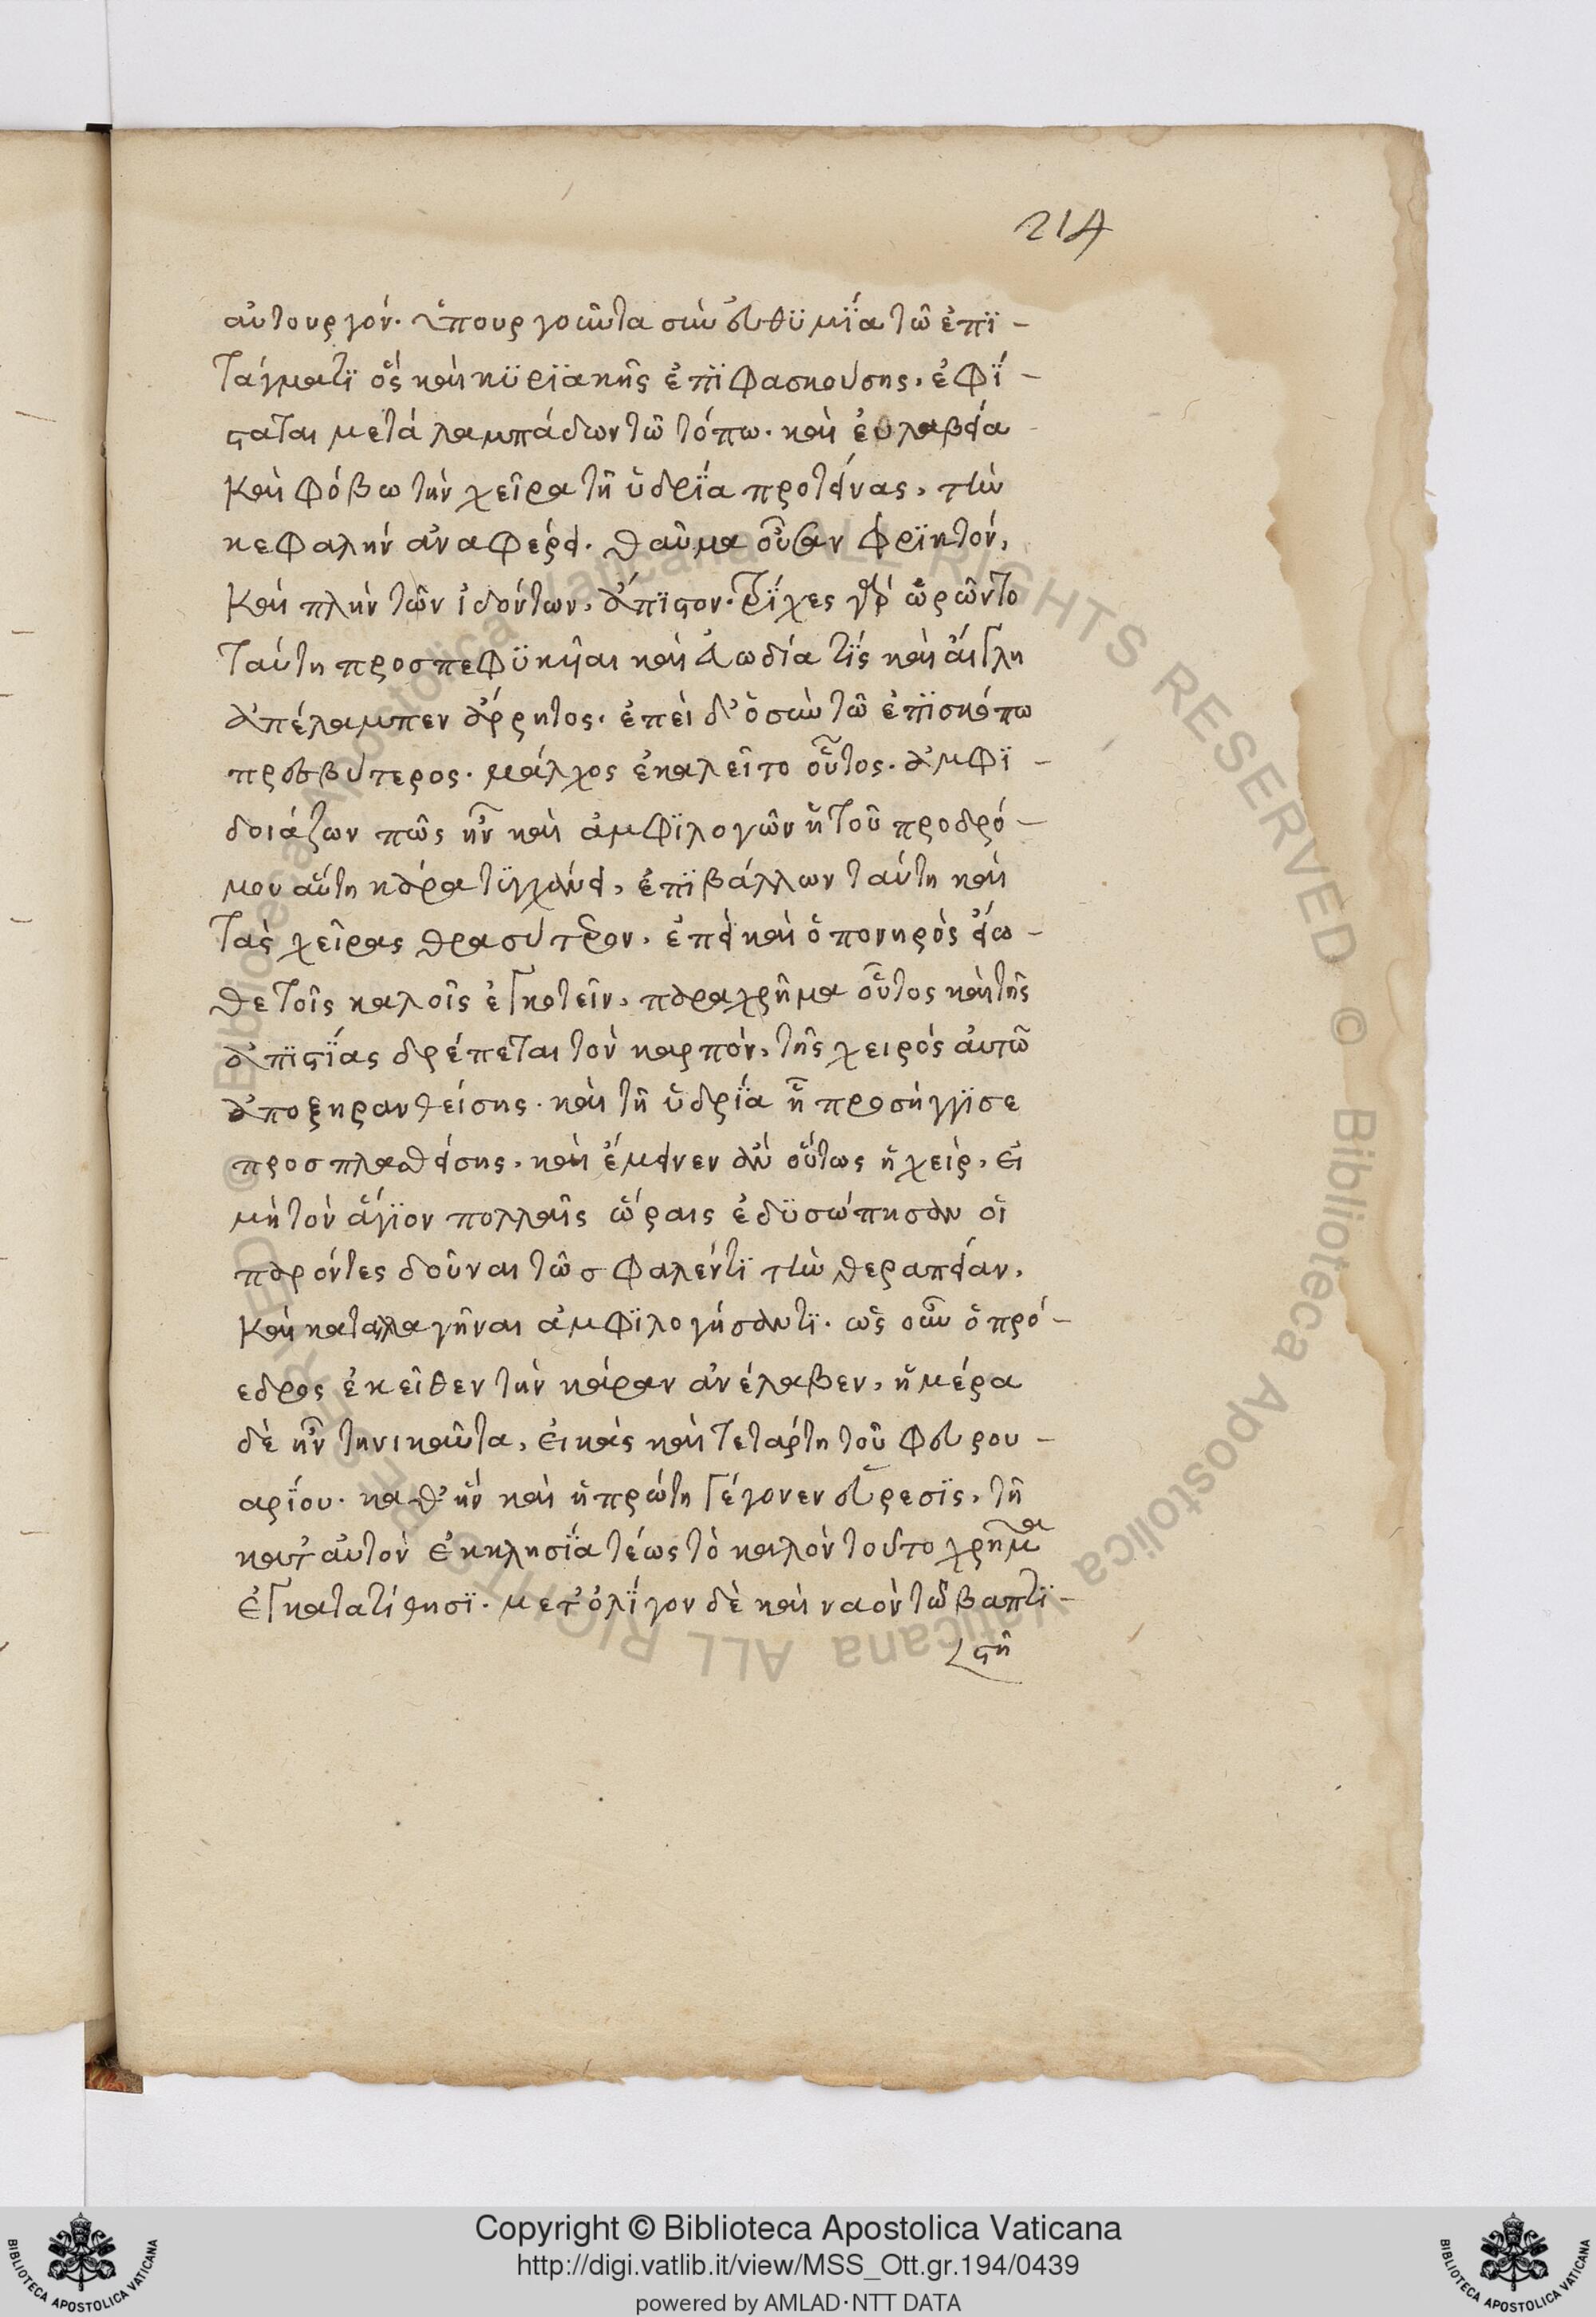 214
αὐτουργόν· ὑπουργοῦντα σὺν εὐθϋμΐα τῶ ἐπϊ-
τάγματϊ ὃς καὶ κϋρϊακῆς ἐπϊφασκούσης, ἐφΐ-
σταται μετὰ λαμπάδων τῶ τόπω· καὶ εὐλαβεία
καὶ φόβω τὴν χεῖρα τῆ ὑδρΐα προτείνας, τὴν
κεφαλὴν ἀναφέρει. θαῦμα οὖσαν φρϊκτόν,
καὶ πλὴν τῶν ἰδόντων, ἄπϊστον· τρΐχες γὰρ ὡρῶντο
ταύτη προσπεφϋκυῖαι καὶ εὐωδία τϊς καὶ αἴγλη
ἀπέλαμπεν ἄρρητος. ἐπεὶ δ' ὁ σὺν τῶ ἐπϊσκόπω
πρεσβύτερος· μάλχος ἐκαλεῖτο οὗτος· ἀμφϊ-
δοιάζων πῶς ἦν καὶ ἀμφϊλογῶν ἢ τοῦ προδρό-
μου αὕτη κάρα τϋγχάνει, ἐπϊβάλλων ταύτη καὶ
τὰς χεῖρας θρασύτερον, ἐπεὶ καὶ ὁ πονηρὸς εἴω-
θε τοῖς καλοῖς ἐγκοτεῖν, παραχρῆμα οὗτος καὶ τῆς
ἀπϊστΐας δρέπεται τὸν καρπόν, τῆς χειρὸς αὐτῶ
ἀποξηρανθείσης· καὶ τῆ ὑδρΐα ἧ προσήγγϊσε
προσπλασθείσης, καὶ ἔμεινεν ἂν οὕτως ἡ χείρ, εἰ
μὴ τὸν ἅγϊον πολλαῖς ὥραις ἐδϋσώπησαν οἱ
παρόντες δοῦναι τῶ σφαλέντϊ τὴν θεραπείαν,
καὶ καταλλαγῆναι ἀμφϊλογήσαντϊ. ὡς οὖν ὁ πρό-
εδρος ἐκεῖθεν τὴν κάραν ἀνέλαβεν, ἡμέρα
δὲ ἦν τηνικαῦτα, εἰκὰς καὶ τετάρτη τοῦ φευρου-
αρΐου· καθ' ἣν καὶ ἡ πρώτη γέγονεν εὕρεσϊς, τῆ
κατ' αὐτὸν ἐκκλησΐα τέως τὸ καλὸν τοῦτο χρῆμα
ἐγκατατίθησϊ. μετ' ὀλΐγον δὲ καὶ ναὸν τῶ βαπτϊ-
στῆ
Copyright © Biblioteca Apostolica Vaticana
http://digi.vatlib.it/view/MSS_Ott.gr.194/0439
powered by AMLAD·NTT DATA
BIBLIOTECA APOSTOLICA VATICANA
BIBLIOTECA APOSTOLICA VATICANA
© Biblioteca Apostolica Vaticana ALL RIGHTS RESERVED © Biblioteca Apostolica Vaticana ALL RIGHTS RESERVED